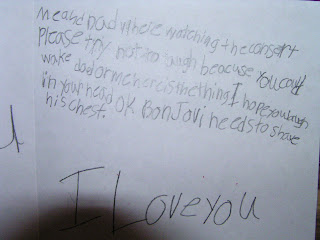 me and Dad where watching the consert
Please try not to laugh beacuse you could
wake dad or me here is the thing I hope you laugh
in your head OK BonJovi needs to shave
his chest.
I Love you